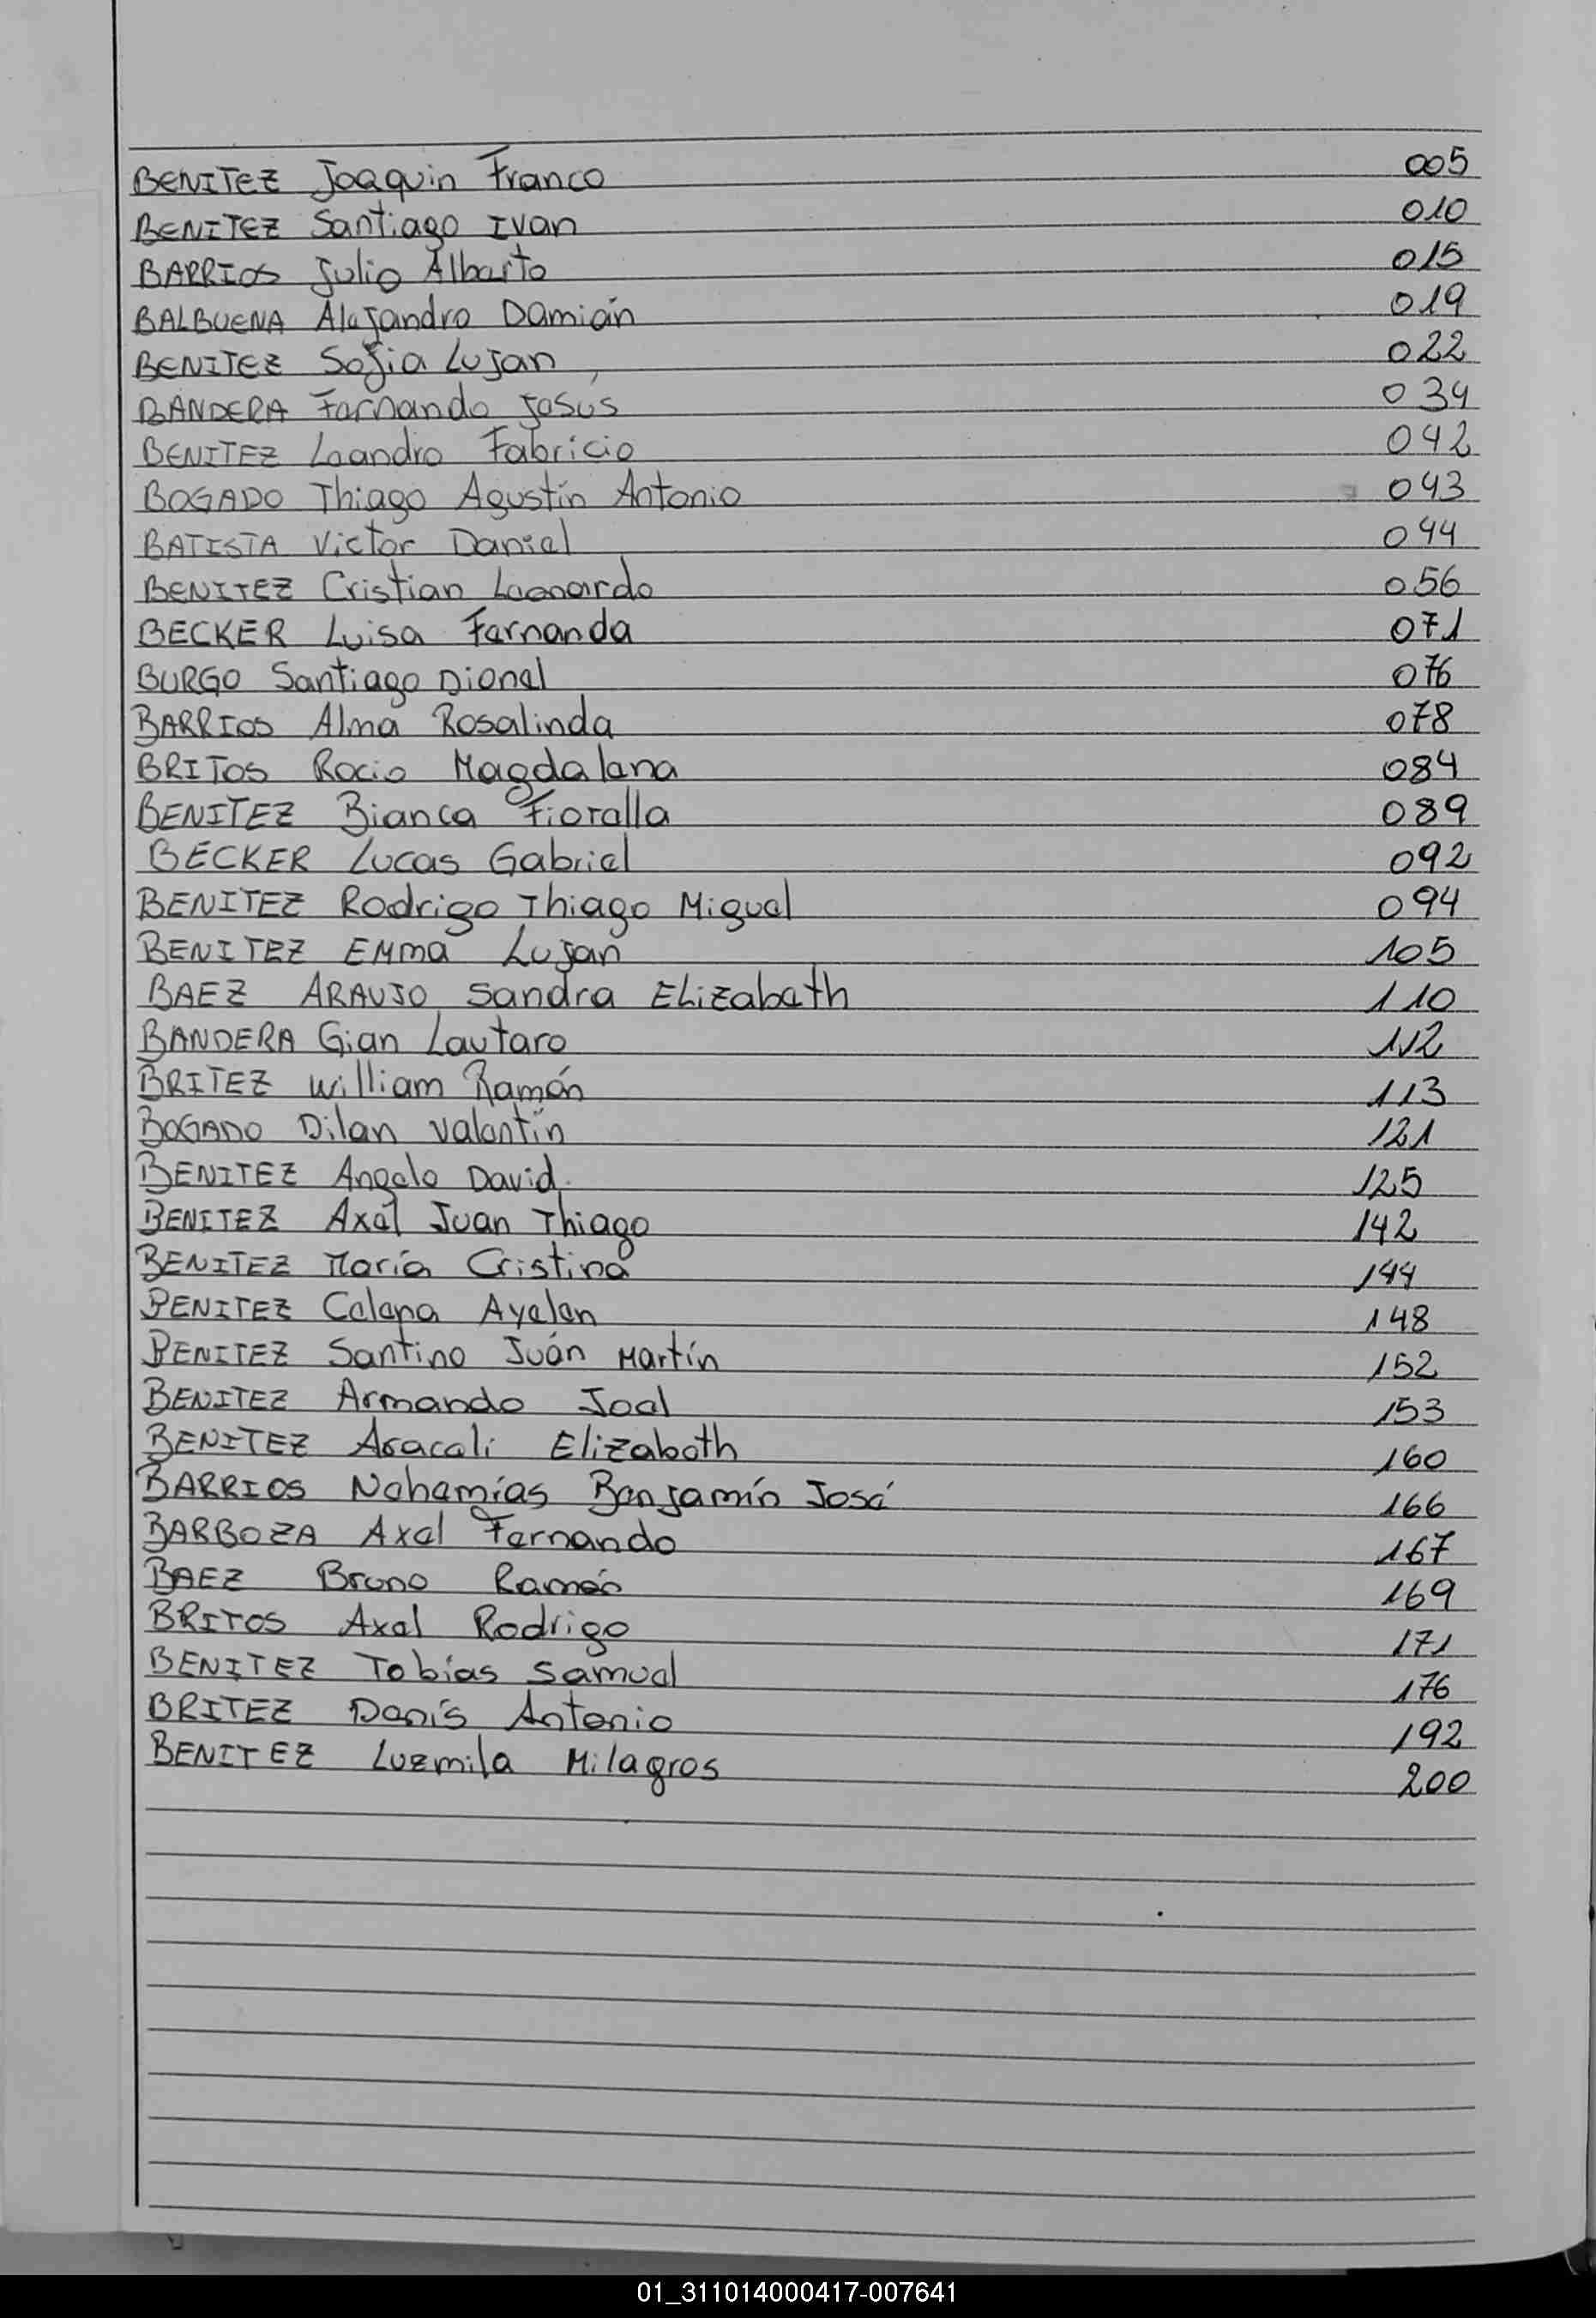 BENITEZ Joaquin Franco 005
BENITEZ Santiago Ivan 010
BARRIOS Julio Alberto 015
BALBUENA Alejandro Damián 019
BENITEZ Sofia Lujan 022
BANDERA Fernando Jesús 034
BENITEZ Leandro Fabricio 042
BOGADO Thiago Agustín Antonio 043
BATISTA Victor Daniel 044
BENITEZ Cristian Leonardo 056
BECKER Luisa Fernanda 071
BURGO Santiago Dionel 076
BARRIOS Alma Rosalinda 078
BRITOS Rocio Magdalena 084
BENITEZ Bianca Fiorella 089
BECKER Lucas Gabriel 092
BENITEZ Rodrigo Thiago Miguel 094
BENITEZ Emma Lujan 105
BAEZ ARAUJO Sandra Elizabeth 110
BANDERA Gian Lautaro 112
BRITEZ William Ramón 113
BOGADO Dilan Valentín 121
BENITEZ Angelo David 125
BENITEZ Axel Juan Thiago 142
BENITEZ María Cristina 144
BENITEZ Celena Ayelen 148
BENITEZ Santino Juán Martín 152
BENITEZ Armando Joel 153
BENITEZ Araceli Elizabeth 160
BARRIOS Nehemías Benjamín José 166
BARBOZA Axel Fernando 167
BAEZ Bruno Ramón 169
BRITOS Axel Rodrigo 171
BENITEZ Tobías Samuel 176
BRITEZ Denís Antonio 192
BENITEZ Luzmila Milagros 200
01_311014000417-007641